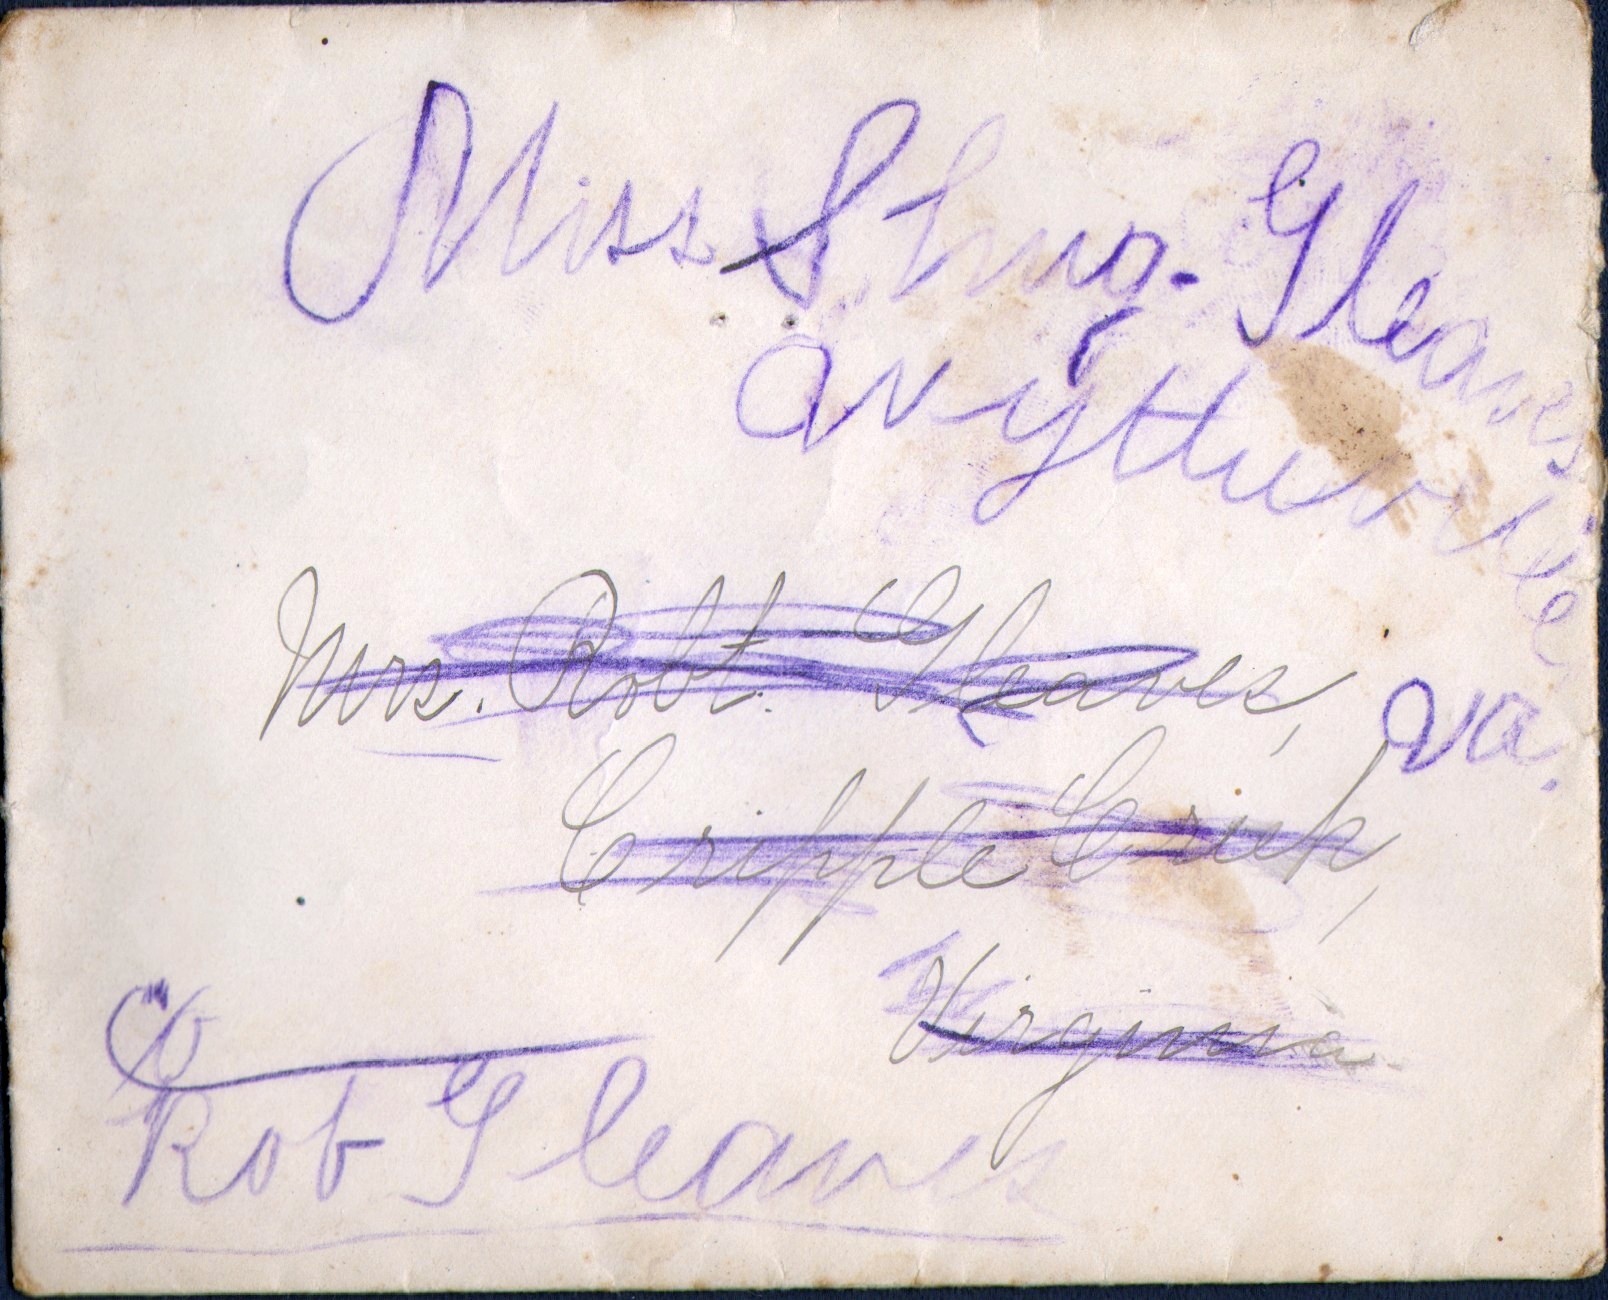 Miss Shug. Gleaves
Wytheville
Va.
Mrs. Robt. Gleaves,
Cripple Creek,
Virginia.
c/o
Rob Gleaves